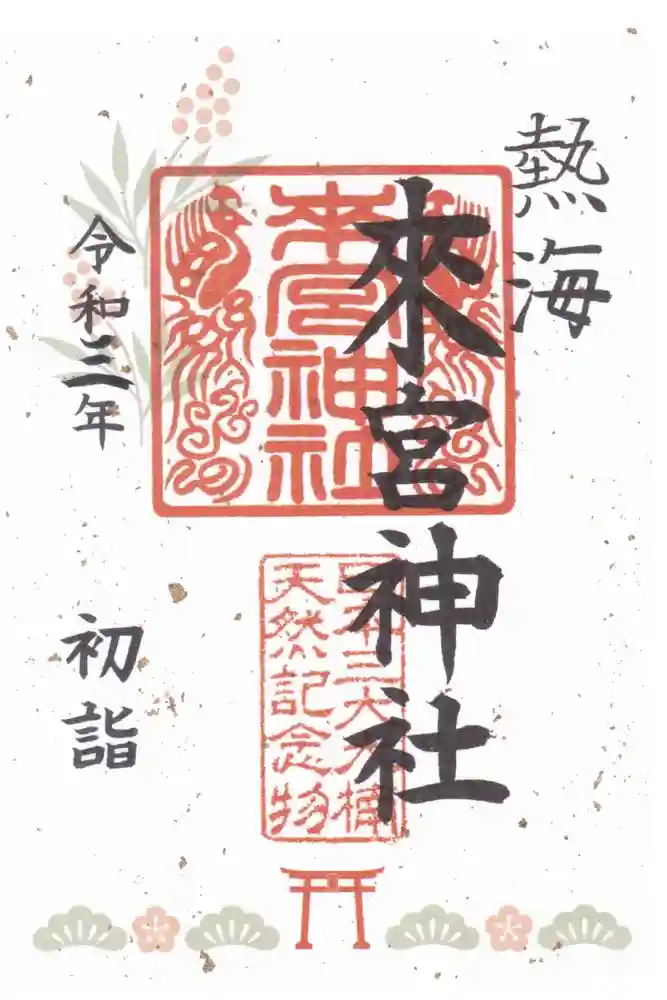 熱海
來宮神社
来宮神社
日本三大大楠
天然記念物
令和三年
初詣